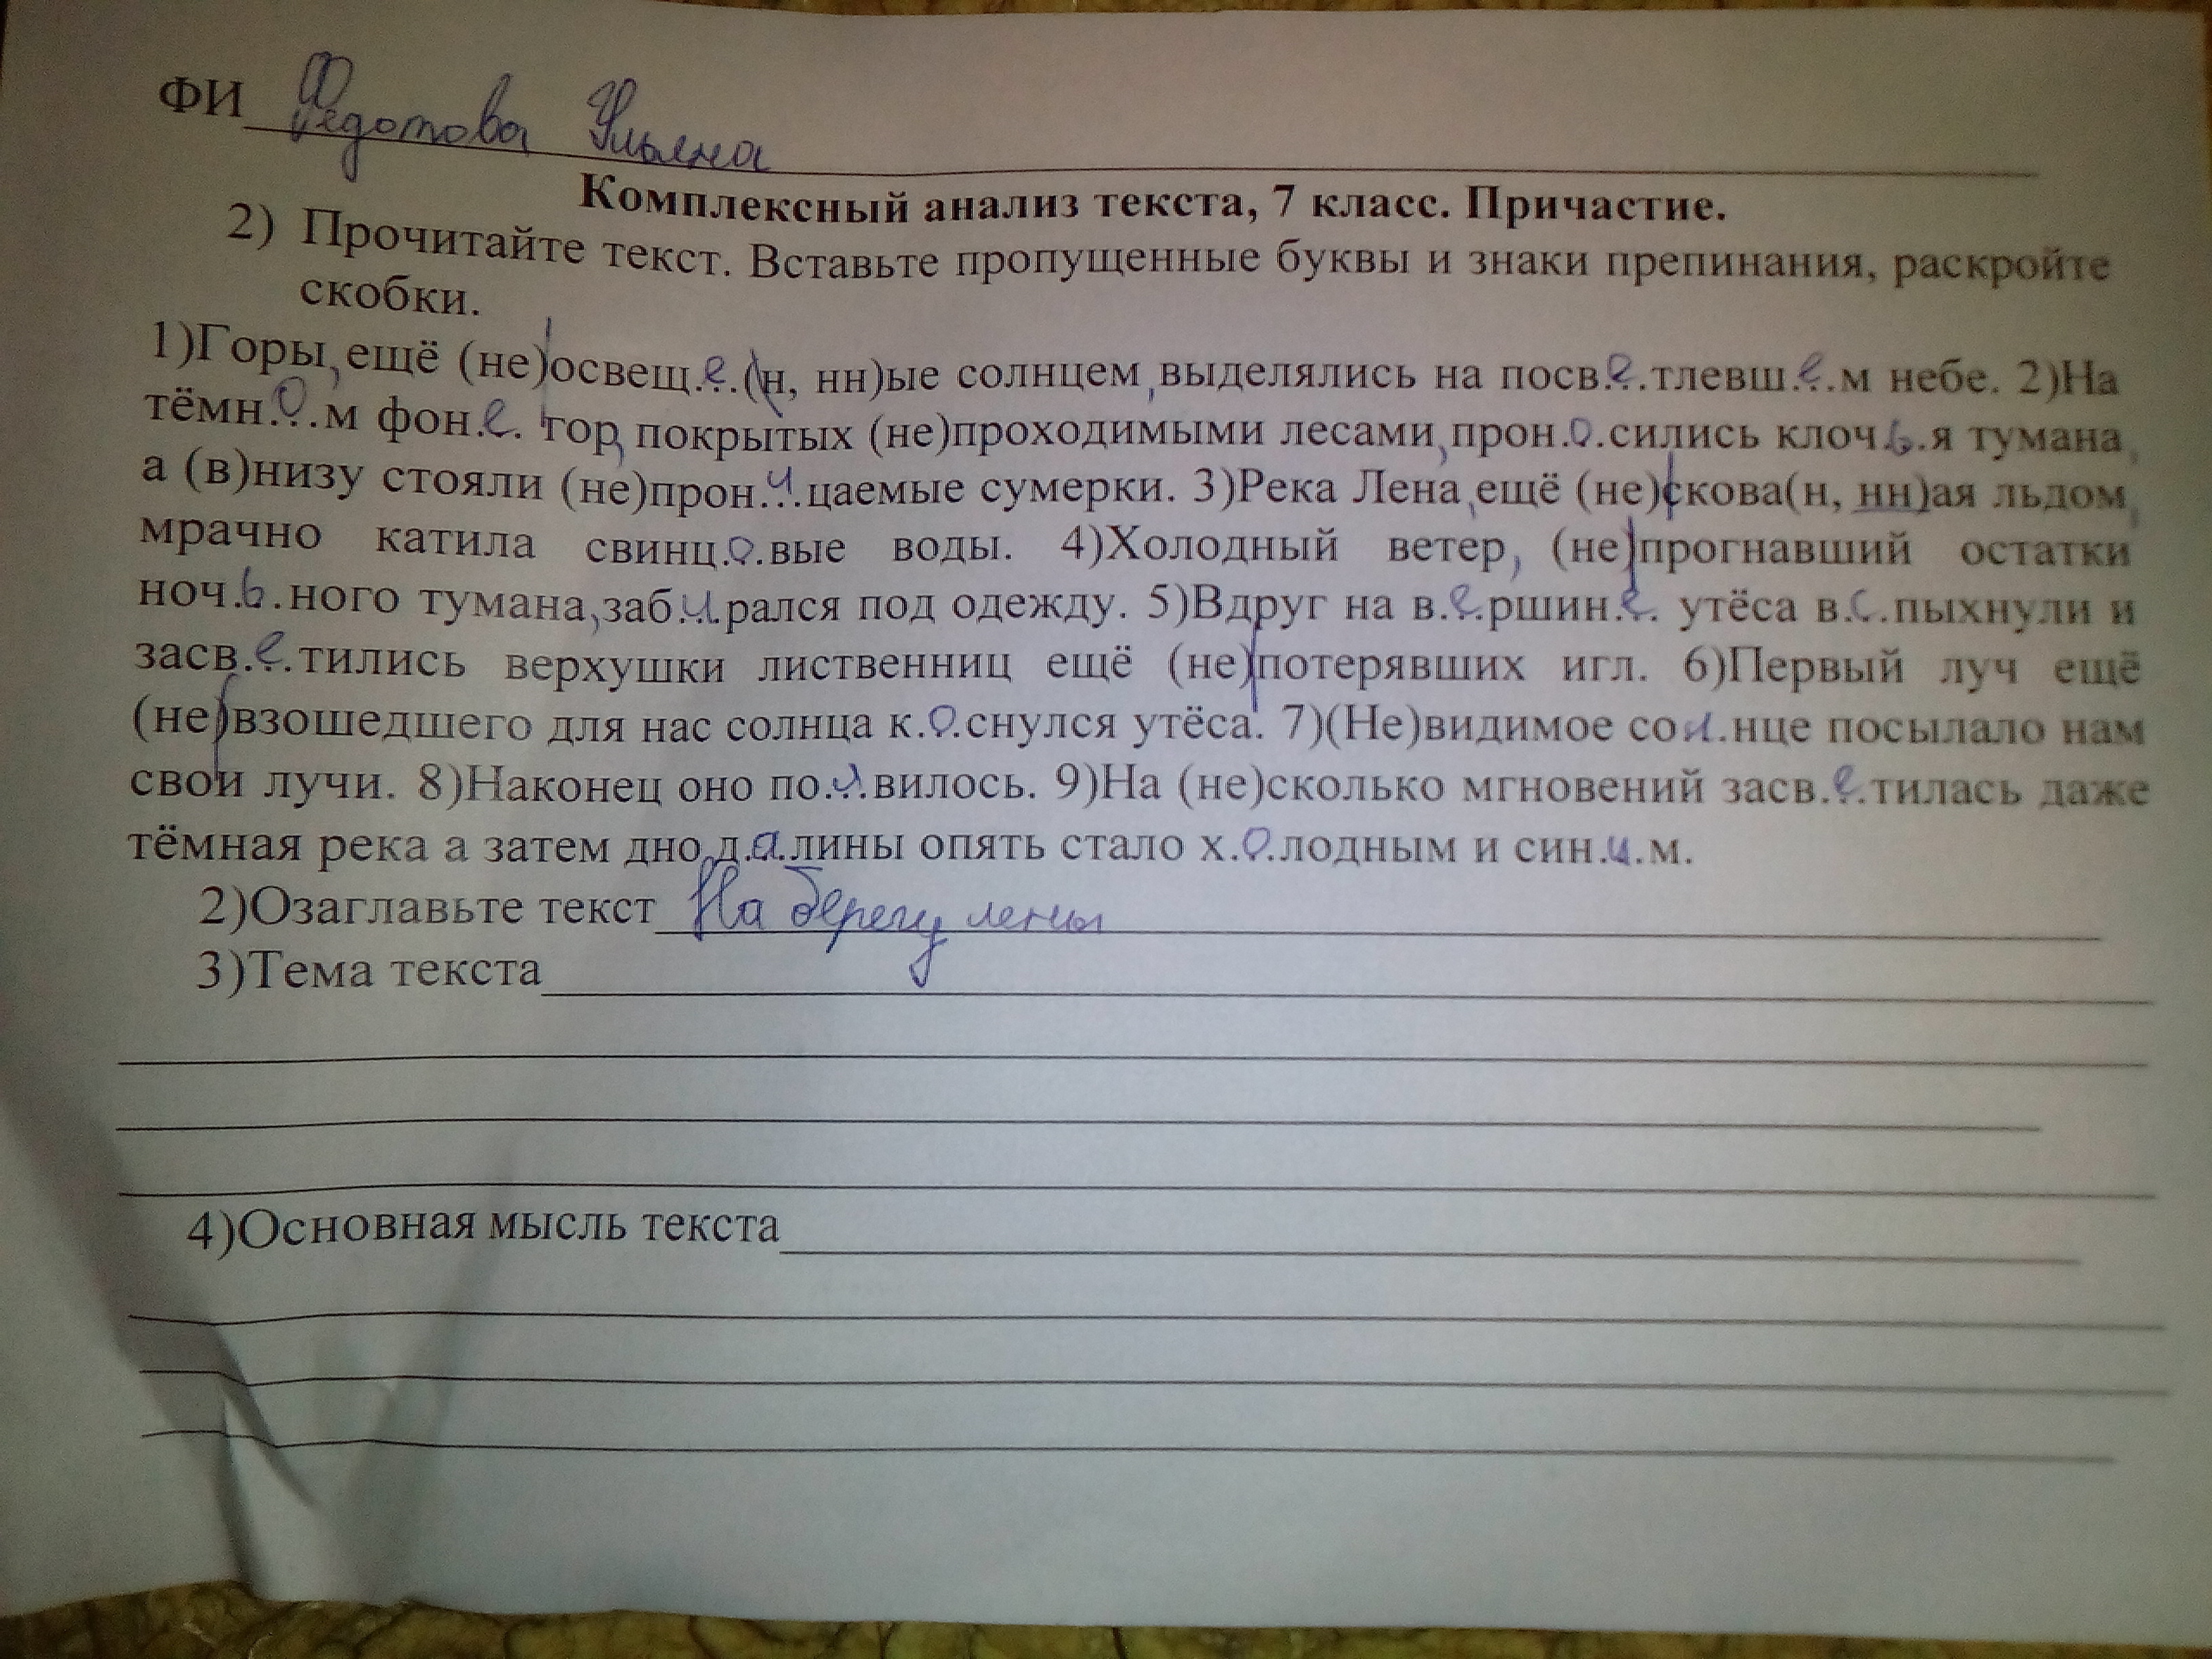 ФИ Федотова Ульяна
Комплексный анализ текста, 7 класс. Причастие.
2) Прочитайте текст. Вставьте пропущенные буквы и знаки препинания, раскройте
скобки.
1)Горы, ещё (не)|освещ.е.(н, нн)ые солнцем, выделялись на посв.е.тлевш.е.м небе. 2)На
тёмн.о.м фон.е. гор, покрытых (не)проходимыми лесами, прон.о.сились клоч.ь.я тумана,
а (в)низу стояли (не)прон.и.цаемые сумерки. 3)Река Лена, ещё (не)|скова(н, нн)ая льдом,
мрачно катила свинц.о.вые воды. 4)Холодный ветер, (не)|прогнавший остатки
ноч.ь.ного тумана, заб.и.рался под одежду. 5)Вдруг на в.е.ршин.е. утёса в.с.пыхнули и
засв.е.тились верхушки лиственниц ещё (не)|потерявших игл. 6)Первый луч ещё
(не)|взошедшего для нас солнца к.о.снулся утёса. 7)(Не)видимое со.л.нце посылало нам
свои лучи. 8)Наконец оно по.я.вилось. 9)На (не)сколько мгновений засв.е.тилась даже
тёмная река а затем дно д.а.лины опять стало х.о.лодным и син.и.м.
2)Озаглавьте текст На берегу лены
3)Тема текста
4)Основная мысль текста